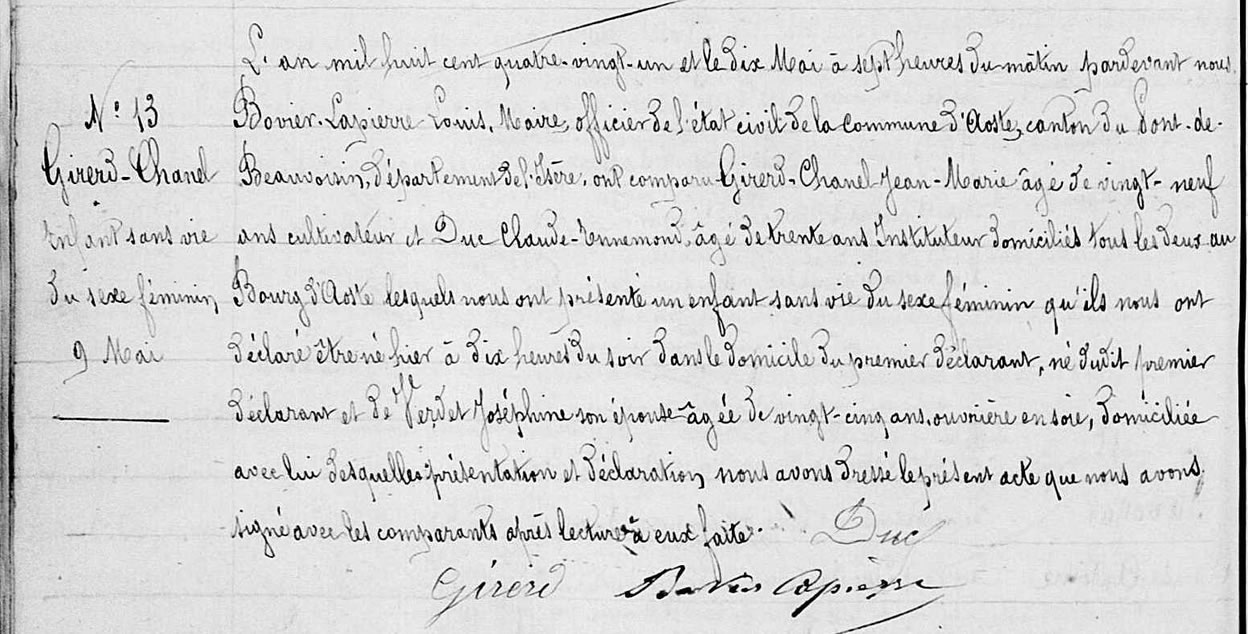 N° 13
Girerd-Chanel
Enfant sans vie
du sexe féminin,
9 Mai
L'an mil huit cent quatre-vingt-un et le dix Mai à sept heures du mâtin pardevant nous.
Bovier-Lapierre Louis, Maire, officier de l'état civil de la Commune d'Aoste, canton du Pont-de-
Beauvoisin, département de l'Isère, ont comparu Girerd-Chanel Jean-Marie âgé de vingt-neuf
ans cultivateur et Duc Claude-Ennemond, âgé de trente ans Instituteur domiciliés tous les deux au
Bourg d'Aoste lesquels nous ont présenté un enfant sans vie du sexe féminin qu'ils nous ont
déclaré être né hier à dix heures du soir dans le domicile du premier déclarant, né dudit premier
déclarant et de Verdet Joséphine son épouse âgée de vingt-cinq ans, ouvrière en soie, domiciliée
avec lui desquelles présentation et déclaration, nous avons dressé le présent acte que nous avons
signé avec les comparants après lecture à eux faite.
Duc
Girerd
Bovier Lapierre